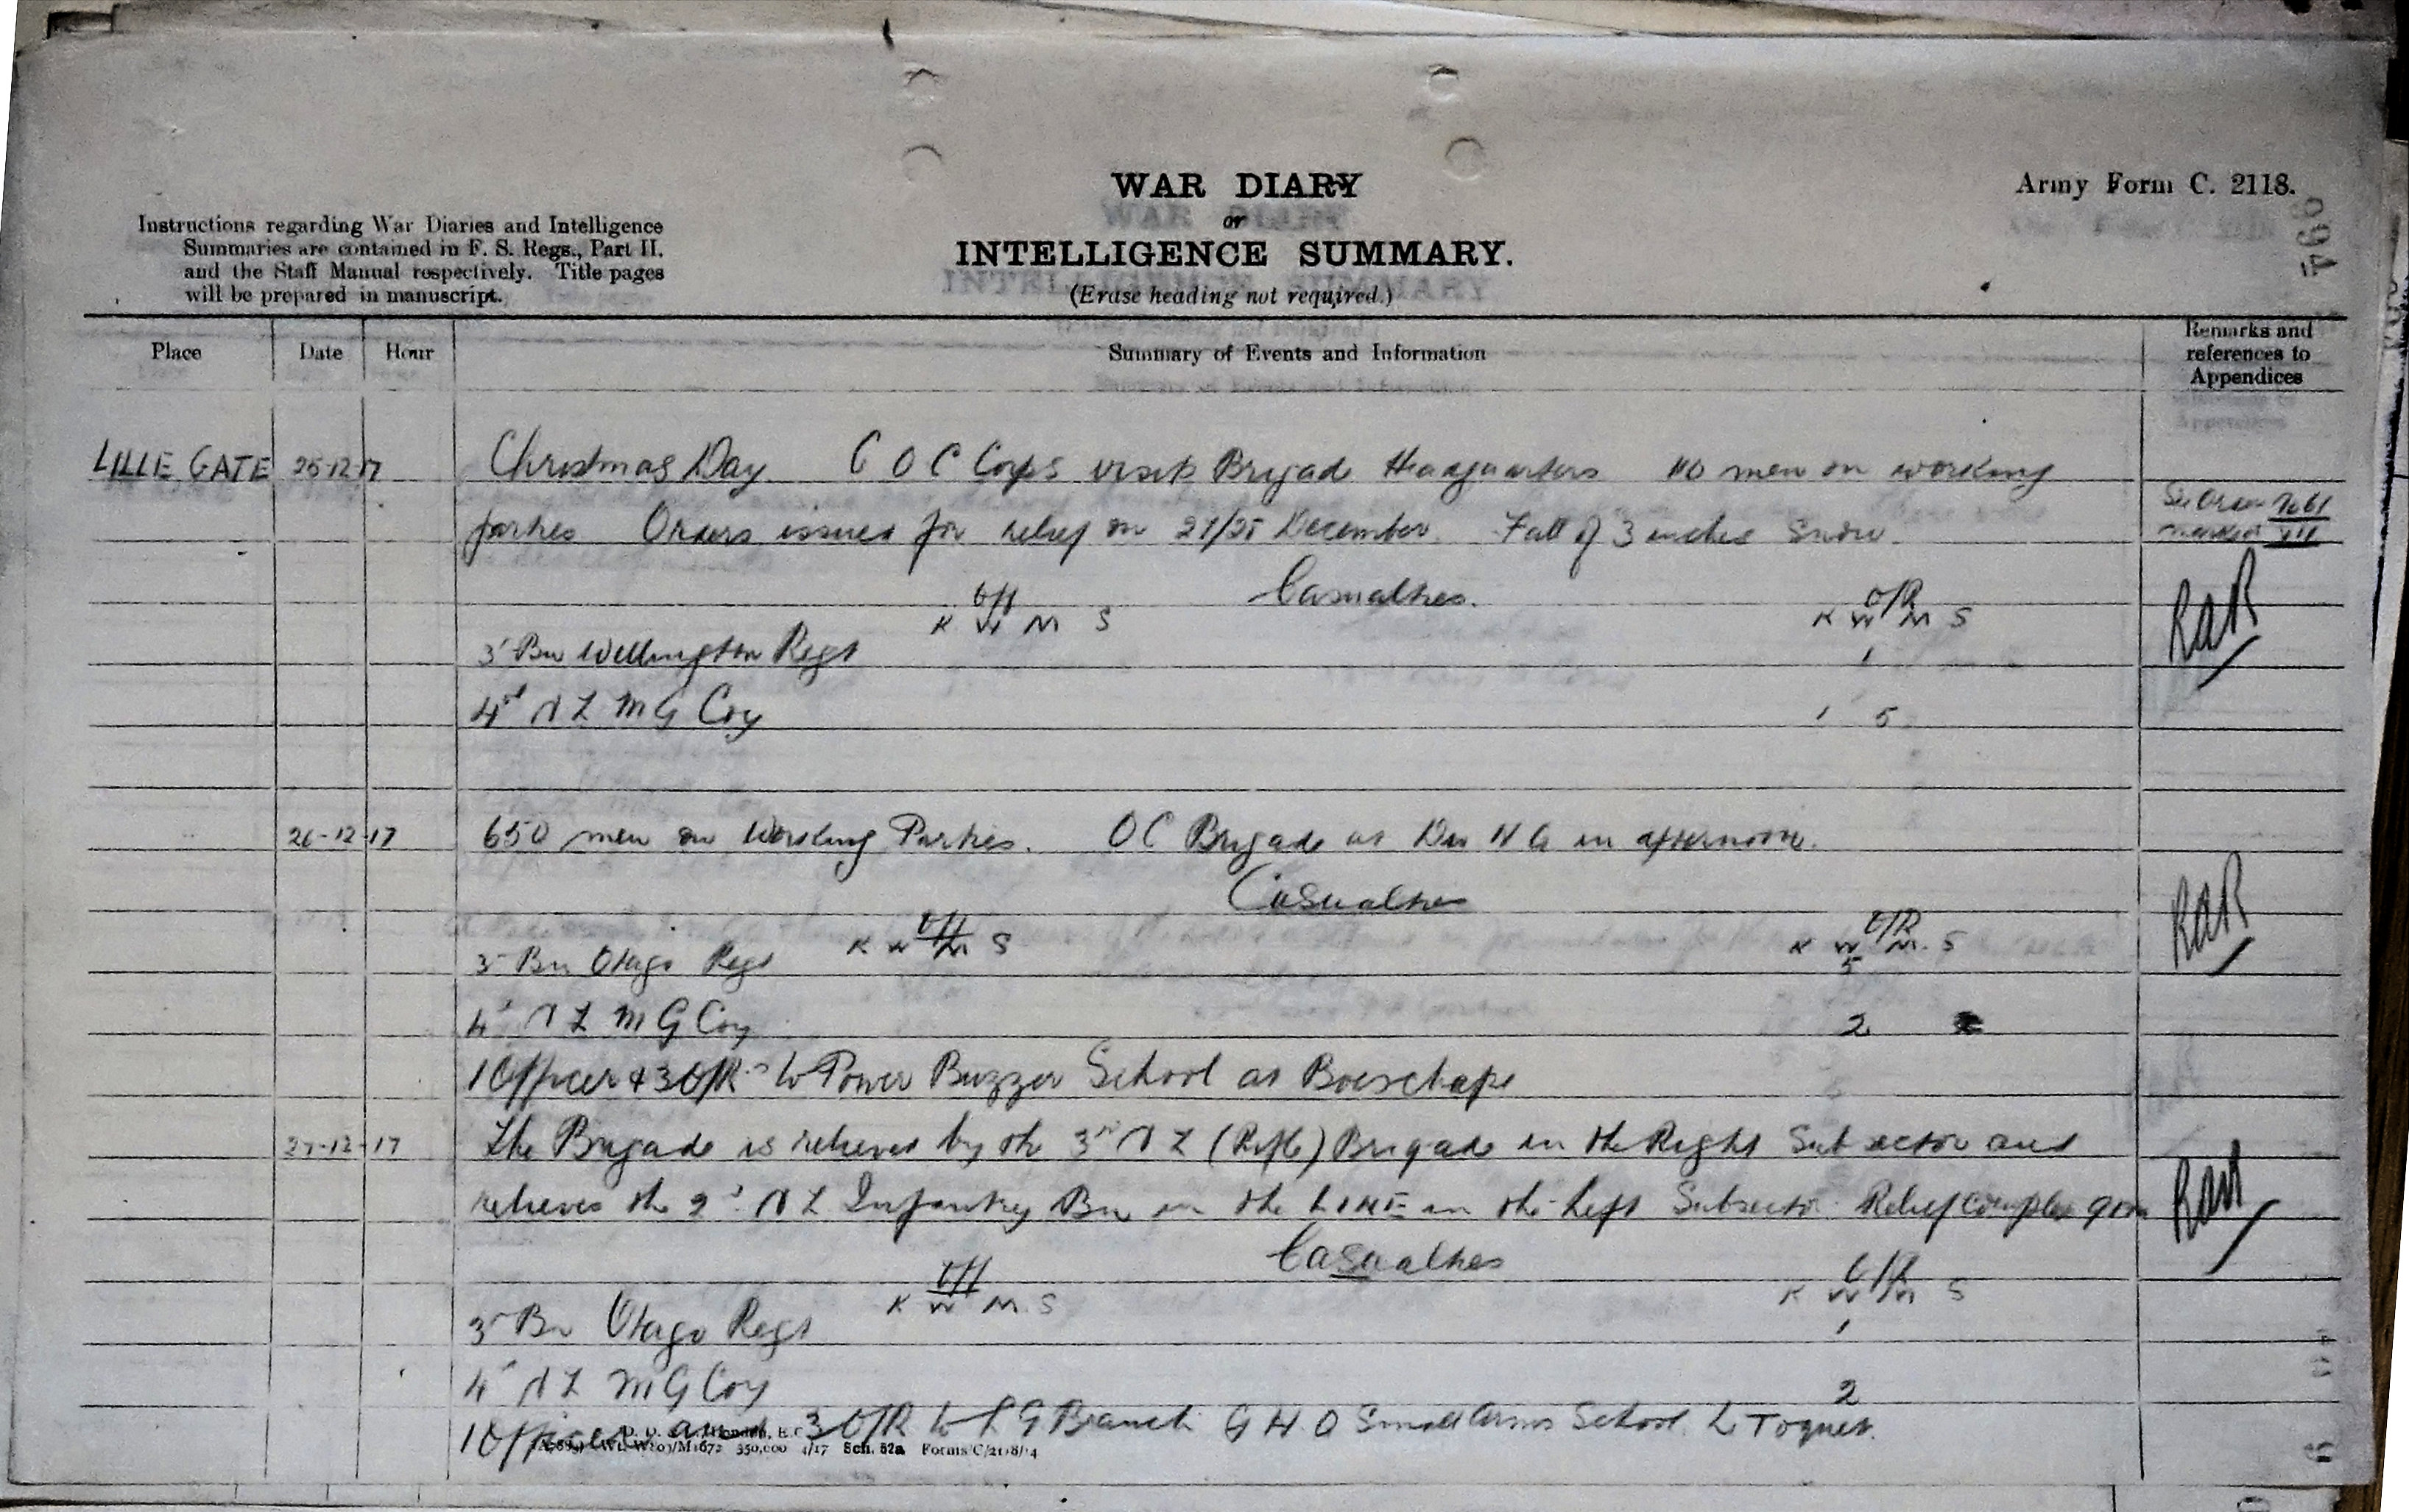 WAR DIARY
or
INTELLIGENCE SUMMARY.
(Erase heading not required.)
Army Form C. 2118.
Instructions regarding War Diaries and Intelligence
Summaries are contained in F. S. Regs., Part II.
and the Staff Manual respectively. Title pages
will be prepared in manuscript.
Place Date Hour Summary of Events and Information Remarks and references to Appendices
LILLE GATE 25-12-17 Christmas Day. G O C Corps visits Brigade Headquarters 110 men on working
parties Orders issued for relief on 27/28 December. Fall of 3 inches Snow.
Casualties.
Off O/R
K W M S K W M S
3 Bn Wellington Regt 1
4th N Z M G Coy 1 5
RAR
26-12-17 650 men on Working Parties. OC Brigade at Div H Q in afternoon.
Casualties
Off O/R
K W M S K W M. S
3 Bn Otago Regt 5
4 N Z M G Coy 2
RAR
1 Officer & 3 O/R to Power Buzzer School at Boeschepe
27-12-17 The Brigade is relieved by the 3rd N Z (Rifle) Brigade in the Right Subsector and
relieves the 2 N Z Infantry Bn in the LINE in the Left Subsector Relief complete 9pm
RAR
Casualties
Off O/R
K W M. S K W M S
3 Bn Otago Regt 1
4 N Z M G Coy 2
1 Officer and 3 O/R to L G Branch G H Q Small Arms School Le Toquet.
350,000 4/17 Sch. 52a Forms/C/2118/14